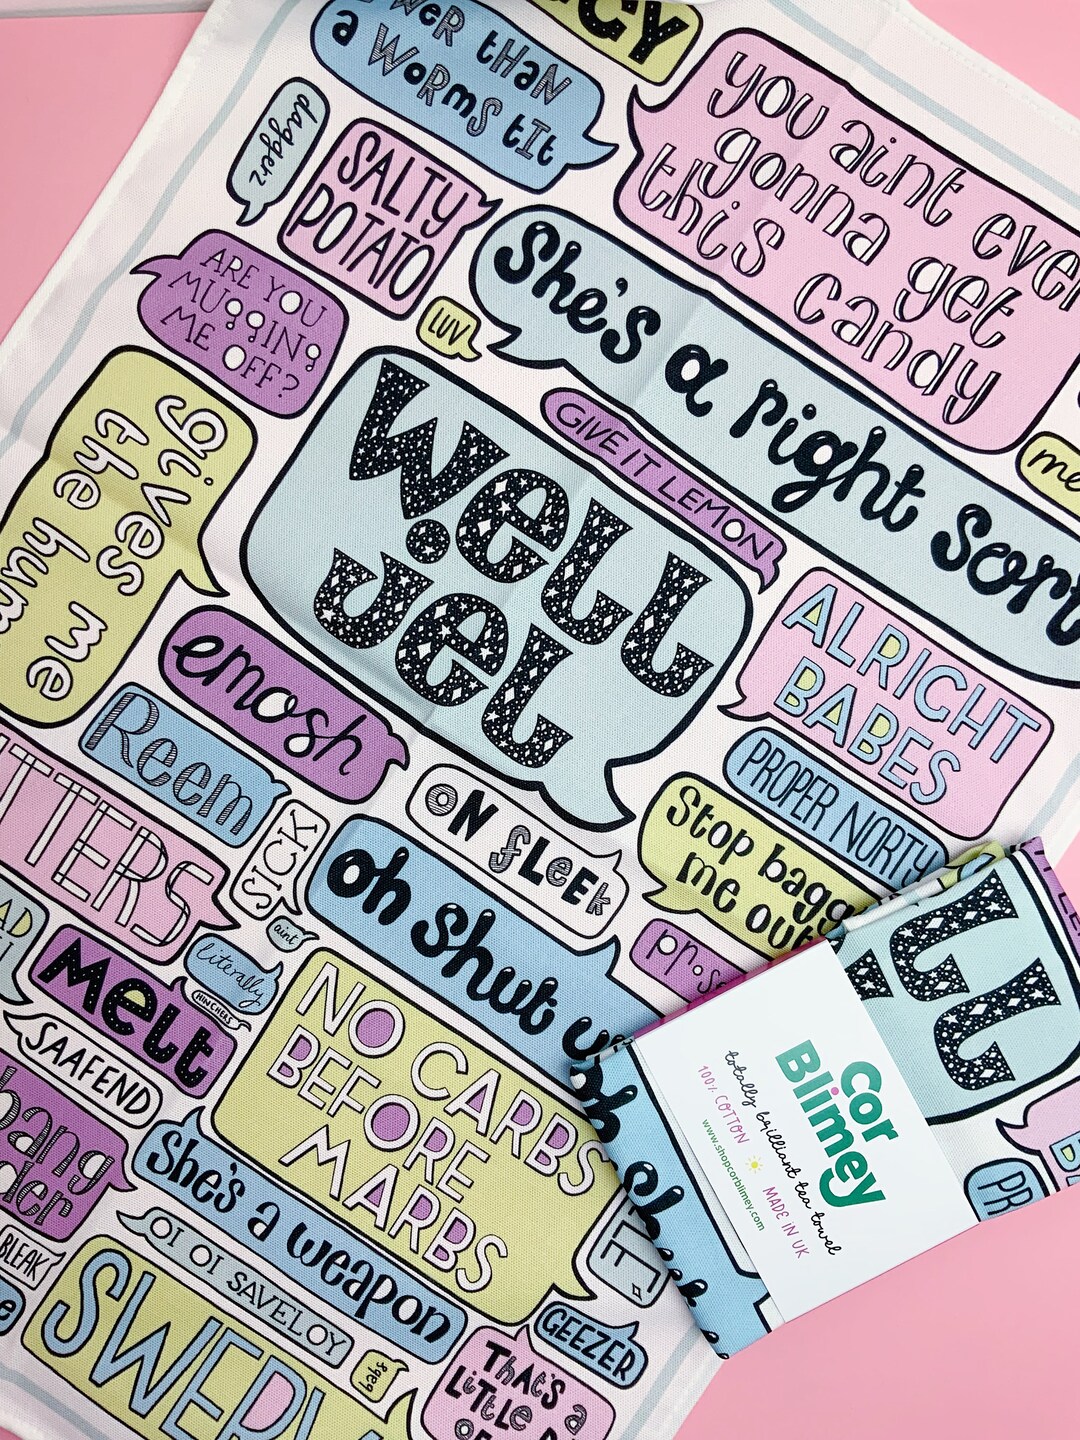 THAN
a WORMS TIT
you aint ever
gonna get
this candy
daggerz
SALTY
POTATO
She's a right sort
ARE YOU
MUGGING
ME OFF?
LUV
GIVE IT LEMON
me
gives me
the hump
well
jel
ALRIGHT
BABES
emosh
Reem
PROPER NORTY
ON FLEEK
Stop bagg
me out
SICK
oh shut up
TTERS
aint
literally
HINCHERS
MELT
SAAFEND
NO CARBS
BEFORE
MARBS
She's a weapon
BLEAK
OI OI SAVELOY
GEEZER
SWERV
bags
THAT'S a
LITTLE
Cor
Blimey
totally brilliant tea towel
100% COTTON MADE IN UK
www.shopcorblimey.com
oh shut
PR